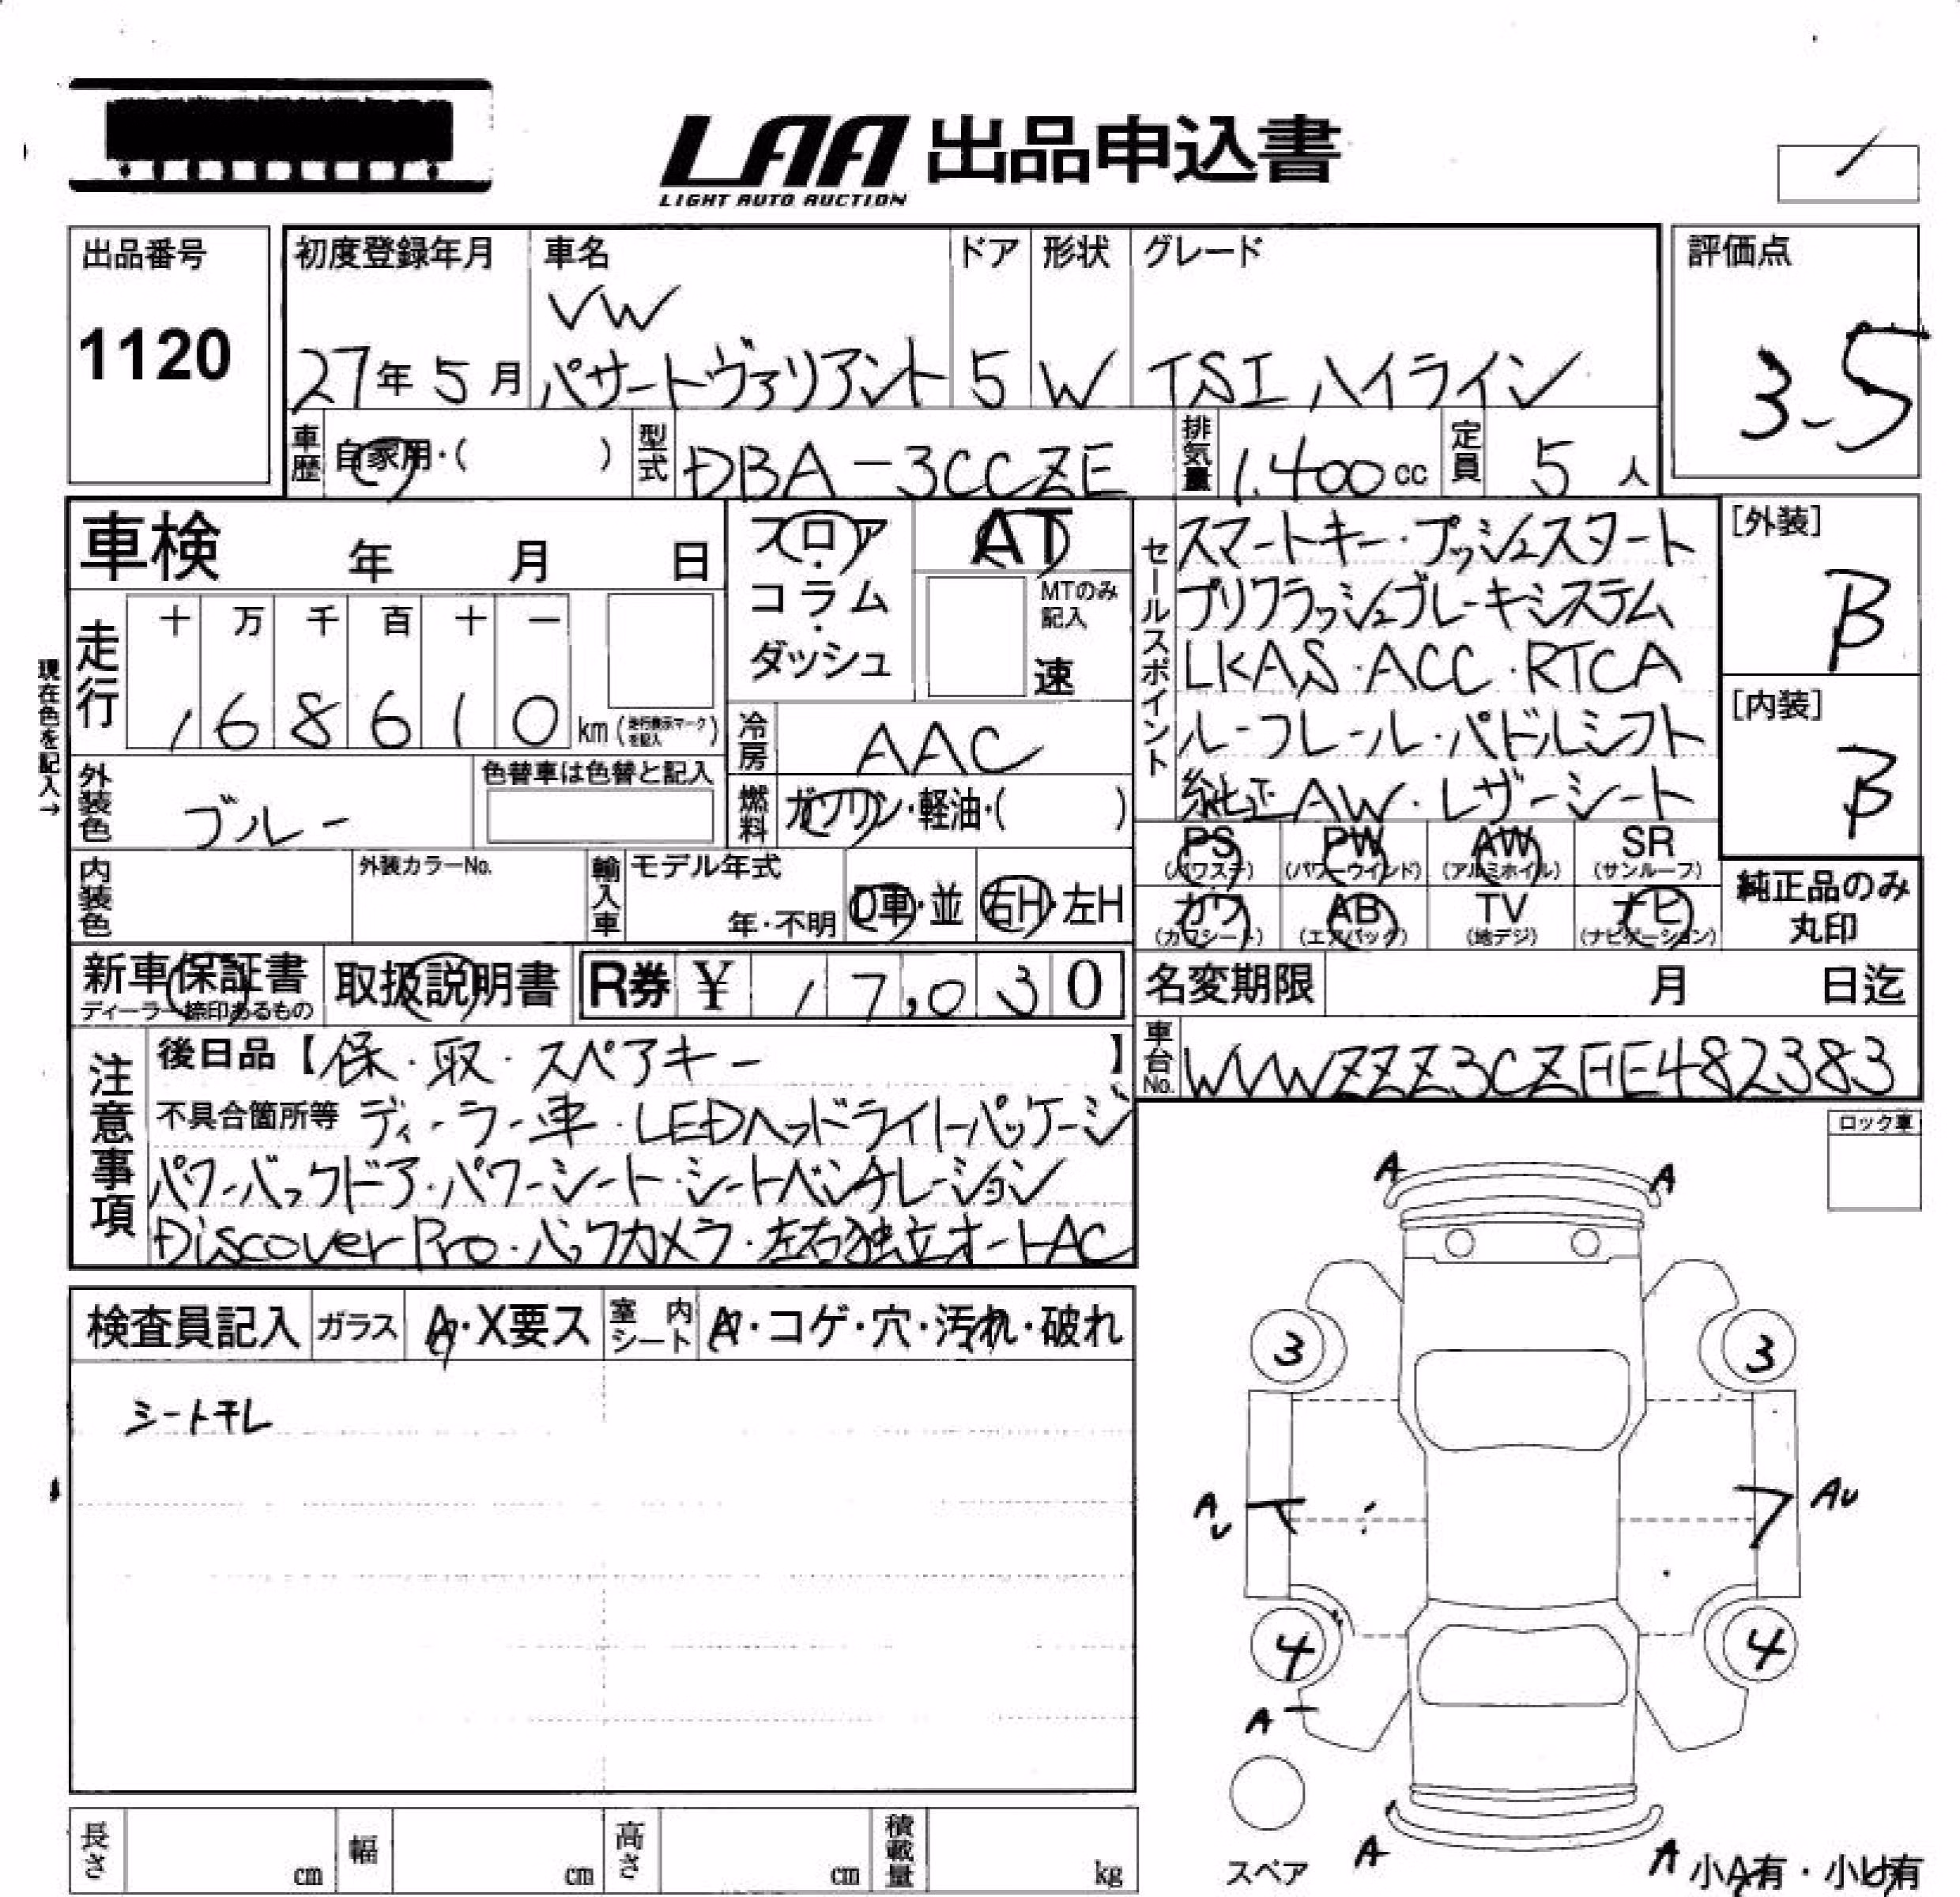 LAA 出品申込書
LIGHT AUTO AUCTION
出品番号
1120
初度登録年月
27年5月
車名
VW
パサートヴァリアント
ドア
5
形状
W
グレード
TSI ハイライン
評価点
3.5
車歴
自家用・( )
型式
DBA-3CCZE
排気量
1.400cc
定員
5人
車検 年 月 日
フロア・コラム・ダッシュ
AT
MTのみ記入
速
セールスポイント
スマートキー・プッシュスタート
プリクラッシュブレーキシステム
LKAS・ACC・RTCA
ルーフレール・パドルシフト
純正AW・レザーシート
[外装]
B
[内装]
B
現在色を記入→
走行
十 万 千 百 十 一
1 6 8 6 1 0 km(走行表示マークを記入)
冷房
AAC
外装色
ブルー
色替車は色替と記入
燃料
ガソリン・軽油・( )
内装色
外装カラーNo.
輸入車
モデル年式
年・不明
D車・並
右H・左H
PS (パワステ)
PW (パワーウインド)
AW (アルミホイル)
SR (サンルーフ)
カワ (カワシート)
AB (エアバッグ)
TV (地デジ)
ナビ (ナビゲーション)
純正品のみ丸印
新車保証書
ディーラー捺印あるもの
取扱説明書
R券 ¥ 17,030
名変期限 月 日迄
車台No.
WVWZZZ3CZFE482383
注意事項
後日品【保・取・スペアキー】
不具合箇所等 ディーラー車・LEDヘッドライトパッケージ
パワーバックドア・パワーシート・シートベンチレーション
Discover Pro・バックカメラ・左右独立オートAC
ロック車
検査員記入
ガラス
A・X要ス
室内シート
A・コゲ・穴・汚れ・破れ
シート干レ
A A
3 3
AU AU
4 4
A
スペア
A A
小A有・小U有
長さ cm
幅 cm
高さ cm
積載量 kg